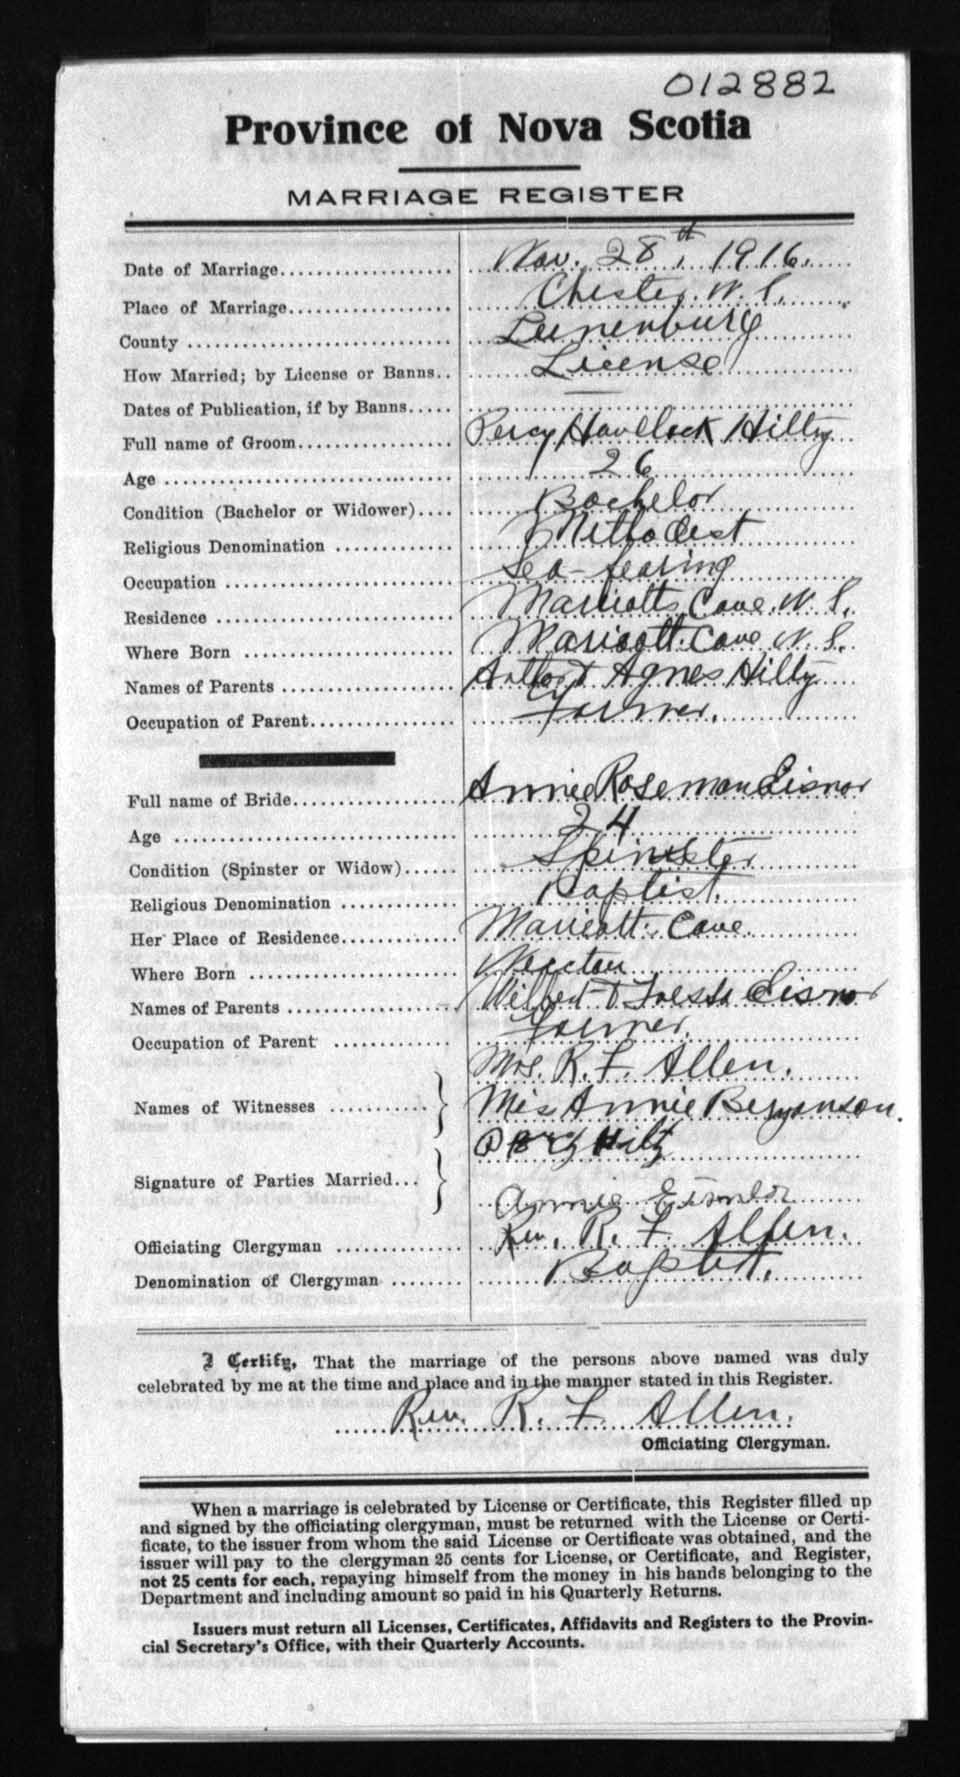 012882
Province of Nova Scotia
MARRIAGE REGISTER
Date of Marriage.................... Nov. 28th, 1916.
Place of Marriage................... Chester, N. S.
County ............................. Lunenburg
How Married; by License or Banns.. License
Dates of Publication, if by Banns..... —
Full name of Groom.................. Percy Havelock Hilty
Age ................................ 26
Condition (Bachelor or Widower).... Bachelor
Religious Denomination ............. Methodist
Occupation ......................... Sea-fearing
Residence .......................... Marriotts Cove, N. S.
Where Born ......................... Marriott Cove N. S.
Names of Parents ................... Agnes Hilty
Occupation of Parent................ Farmer.
Full name of Bride.................. Annie Roseman Eisnor
Age ................................ 24
Condition (Spinster or Widow)...... Spinster
Religious Denomination ............. Baptist.
Her Place of Residence.............. Marriott Cove
Where Born .........................
Names of Parents ................... Wilbert & Eisnor
Occupation of Parent ............... Farmer.
Mrs. R. F. Allen.
Names of Witnesses ........... Miss Annie Bezanson.
Percy Hilty
Signature of Parties Married...
Annie Eisnor
Officiating Clergyman .............. Rev. R. F. Allen.
Denomination of Clergyman ........ Baptist.
I Certify, That the marriage of the persons above named was duly
celebrated by me at the time and place and in the manner stated in this Register.
Rev. R. F. Allen.
Officiating Clergyman.
When a marriage is celebrated by License or Certificate, this Register filled up
and signed by the officiating clergyman, must be returned with the License or Certi-
ficate, to the issuer from whom the said License or Certificate was obtained, and the
issuer will pay to the clergyman 25 cents for License, or Certificate, and Register,
not 25 cents for each, repaying himself from the money in his hands belonging to the
Department and including amount so paid in his Quarterly Returns.
Issuers must return all Licenses, Certificates, Affidavits and Registers to the Provin-
cial Secretary's Office, with their Quarterly Accounts.